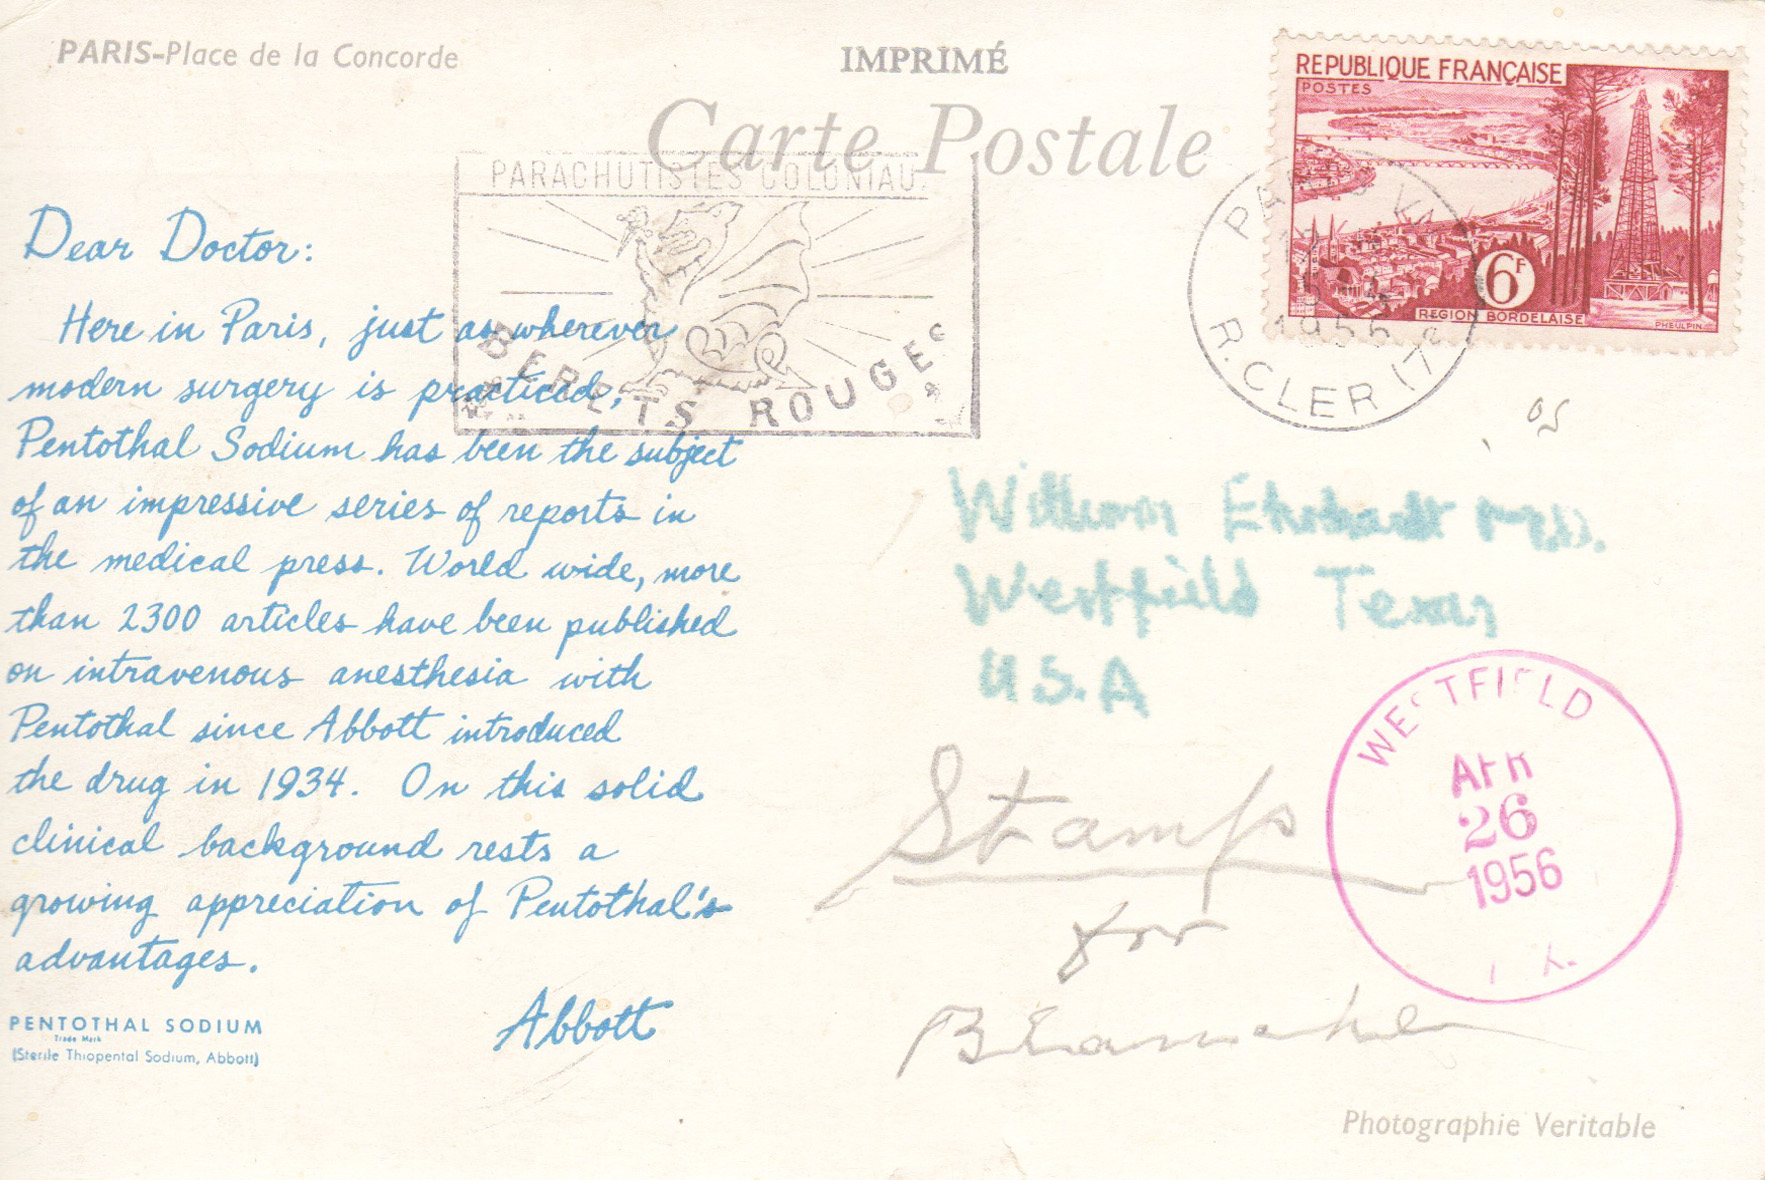 PARIS-Place de la Concorde
IMPRIMÉ
Carte Postale
REPUBLIQUE FRANÇAISE
POSTES
6F
REGION BORDELAISE
PHEULPIN
PARACHUTISTES COLONIAU
BERETS ROUGES
PARIS V
17
1956
R. CLER (7e)
Dear Doctor:
Here in Paris, just as wherever
modern surgery is practiced,
Pentothal Sodium has been the subject
of an impressive series of reports in
the medical press. World wide, more
than 2300 articles have been published
on intravenous anesthesia with
Pentothal since Abbott introduced
the drug in 1934. On this solid
clinical background rests a
growing appreciation of Pentothal's
advantages.
Abbott
PENTOTHAL SODIUM
Trade Mark
(Sterile Thiopental Sodium, Abbott)
William Ehrhardt M.D.
Westfield Texas
U.S.A
Stamp
for
Blanche
WESTFIELD
APR
26
1956
Photographie Veritable